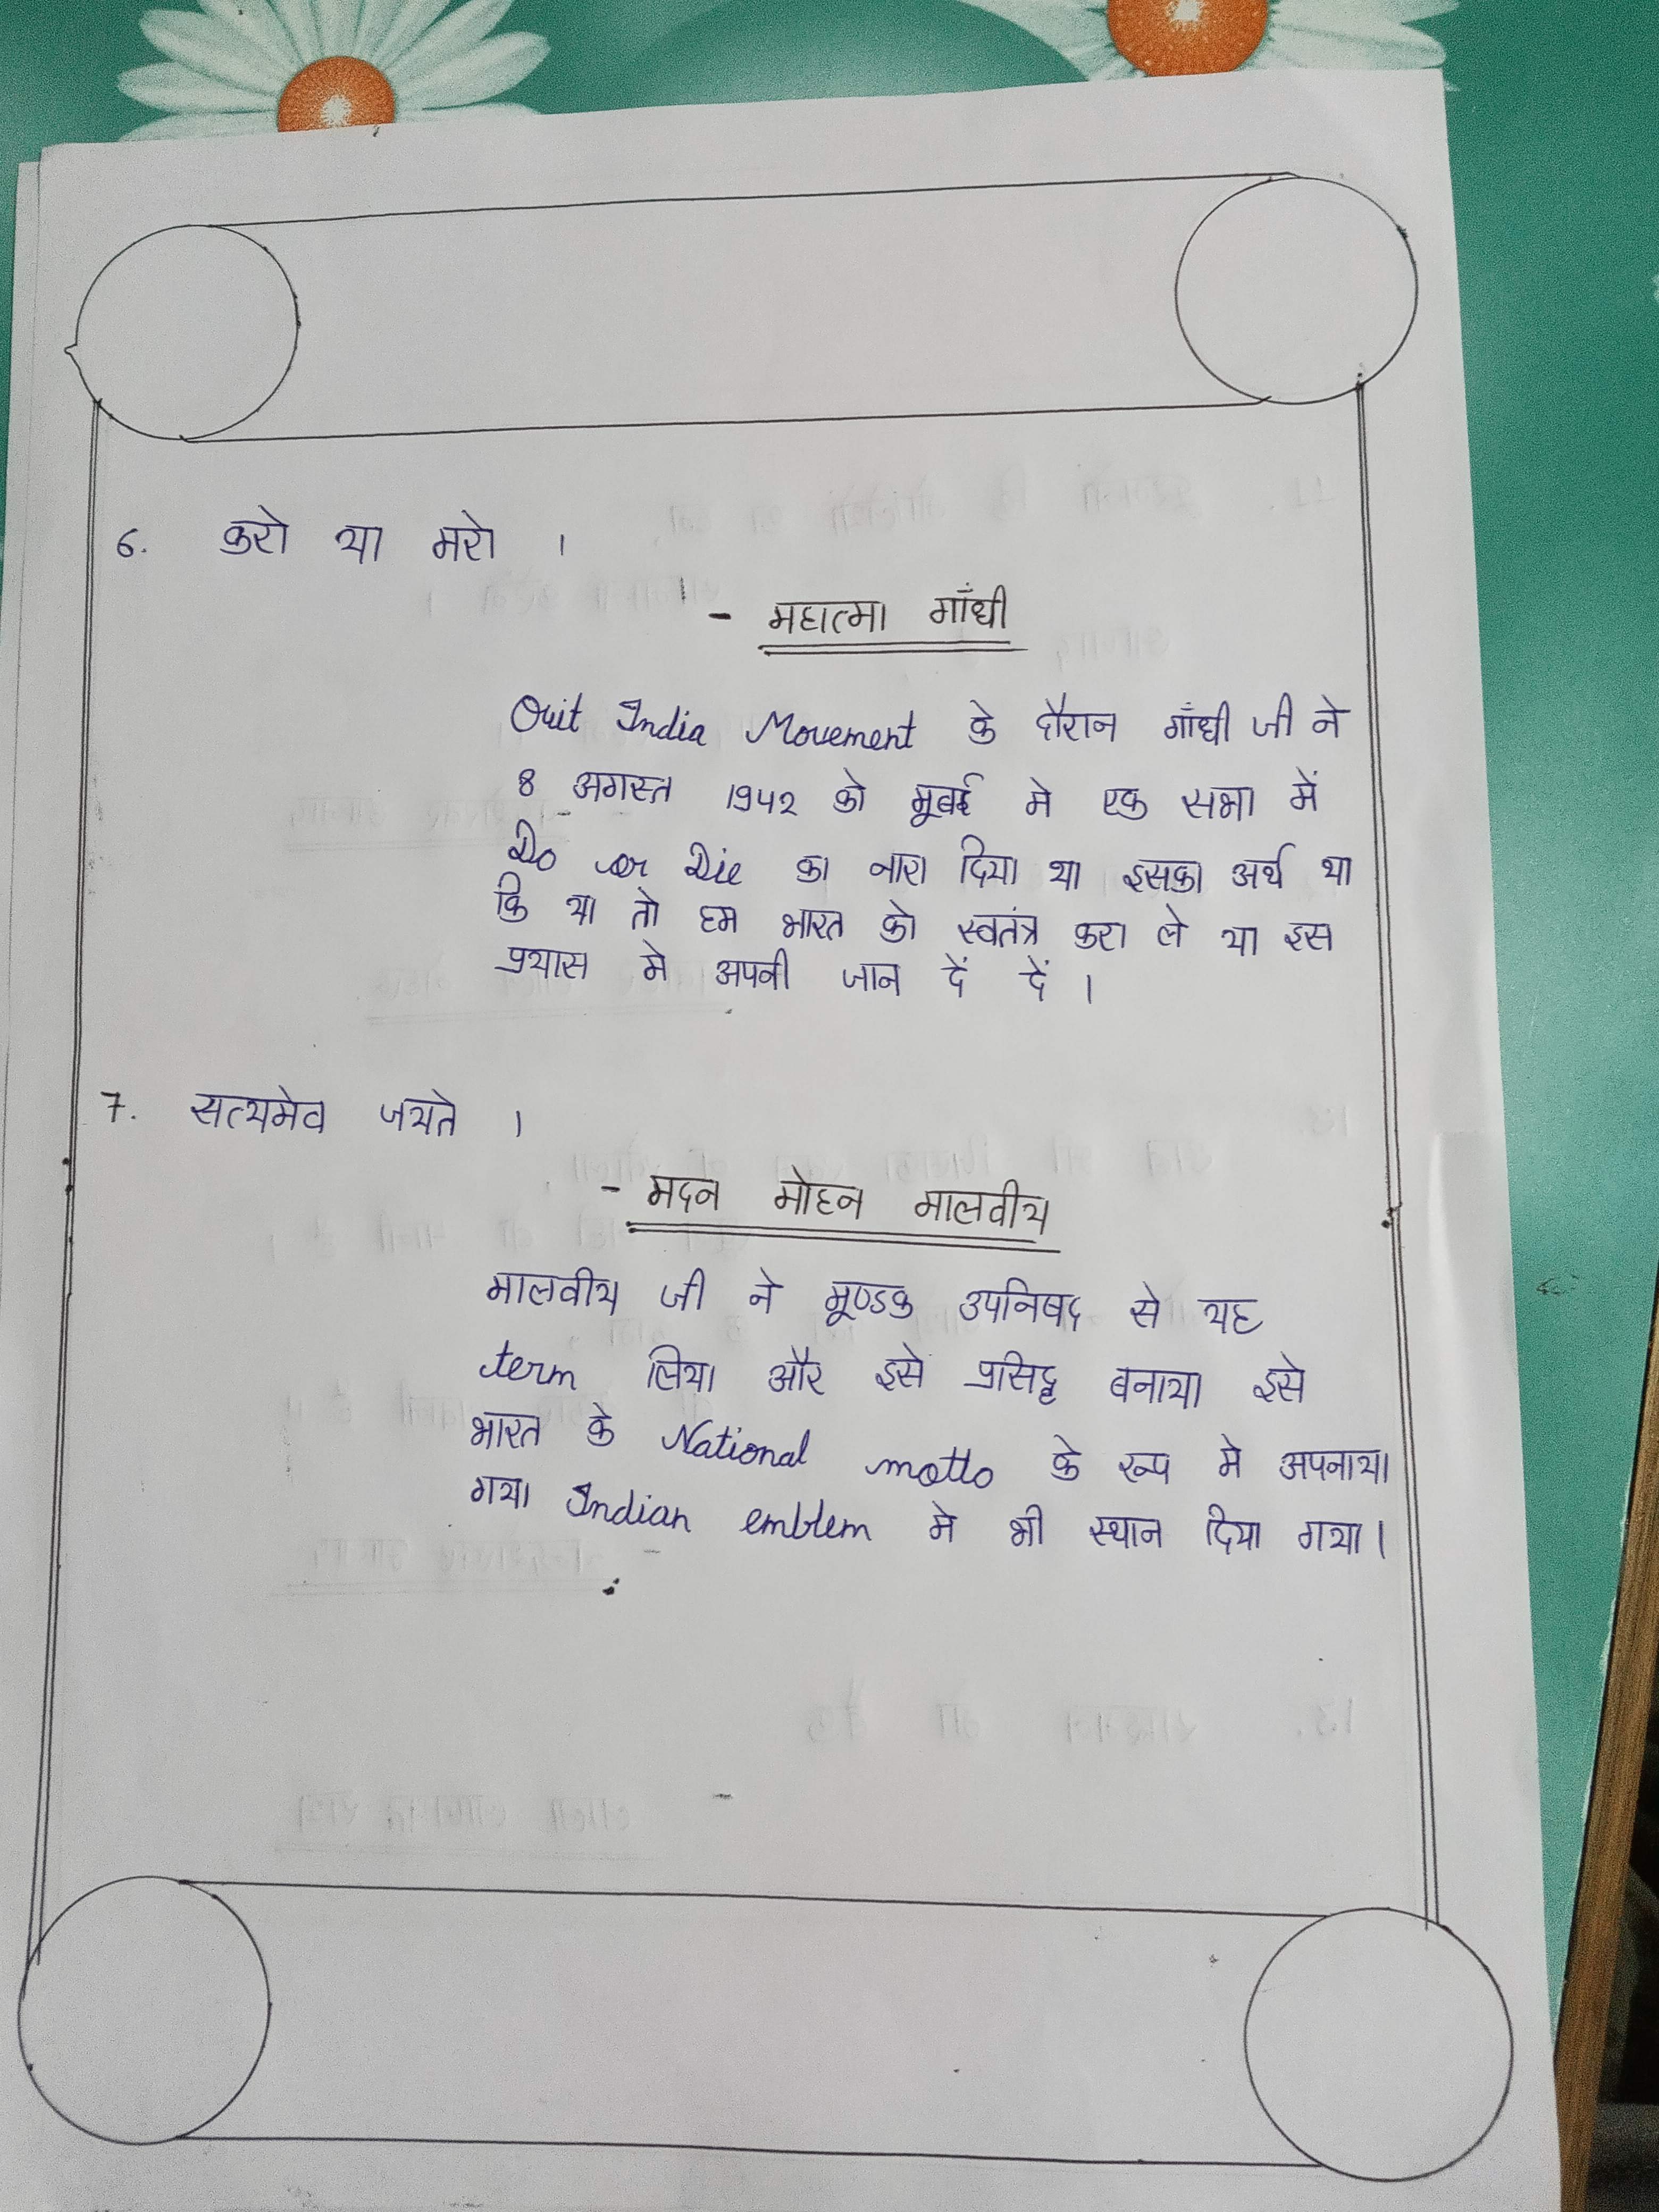 6. करो या मरो ।
- महात्मा गाँधी
Quit India Movement के दौरान गाँधी जी ने
8 अगस्त 1942 को मूबई मे एक सभा में
Do or Die का नारा दिया था इसका अर्थ था
कि या तो हम भारत को स्वतंत्र करा ले या इस
प्रयास मे अपनी जान दें दें ।
7. सत्यमेव जयते ।
- मदन मोहन मालवीय
मालवीय जी ने मूण्डक उपनिषद से यह
term लिया और इसे प्रसिद्ध बनाया इसे
भारत के National motto के रूप मे अपनाया
गया Indian emblem मे भी स्थान दिया गया।